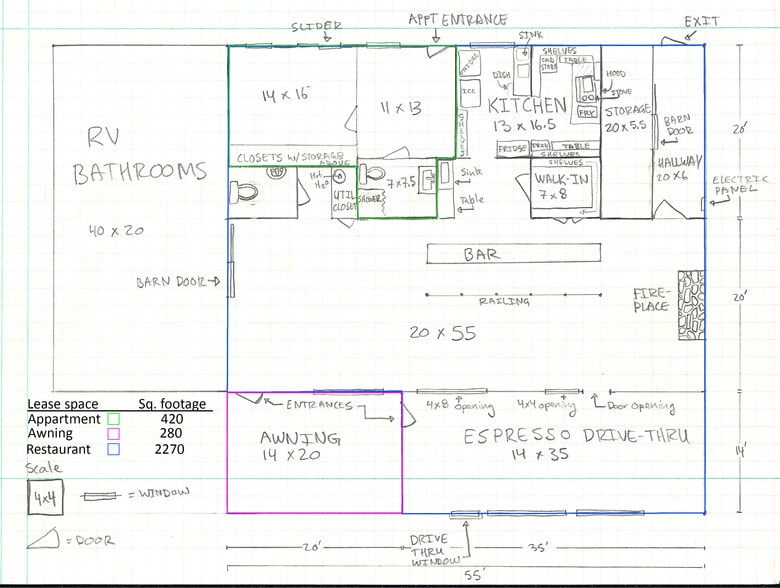 SLIDER
APPT ENTRANCE
EXIT
SINK
SHELVES
TABLE
FRIDGE
DISH
HOOD
STOVE
ICE
14 x 16
11 x 13
KITCHEN
13 x 16.5
FRY
STORAGE
20 x 5.5
BARN
DOOR
20'
RV
BATHROOMS
SHELVES
FRIDGE
TABLE
SHELVES
SHELVES
CLOSETS w/STORAGE
ABOVE
HALLWAY
20 x 6
ELECTRIC
PANEL
H2O
UTIL
CLOSET
SHOWER
7 x 7.5
Sink
Table
WALK-IN
7 x 8
40 x 20
BAR
BARN DOOR
RAILING
FIRE-
PLACE
20'
20 x 55
Lease space Sq. footage
Appartment 420
Awning 280
Restaurant 2270
ENTRANCES
4x8 opening
4x4 opening
Door Opening
AWNING
14 x 20
ESPRESSO DRIVE-THRU
14 x 35
14'
Scale
4x4
= WINDOW
= DOOR
DRIVE
THRU
WINDOW
20'
35'
55'